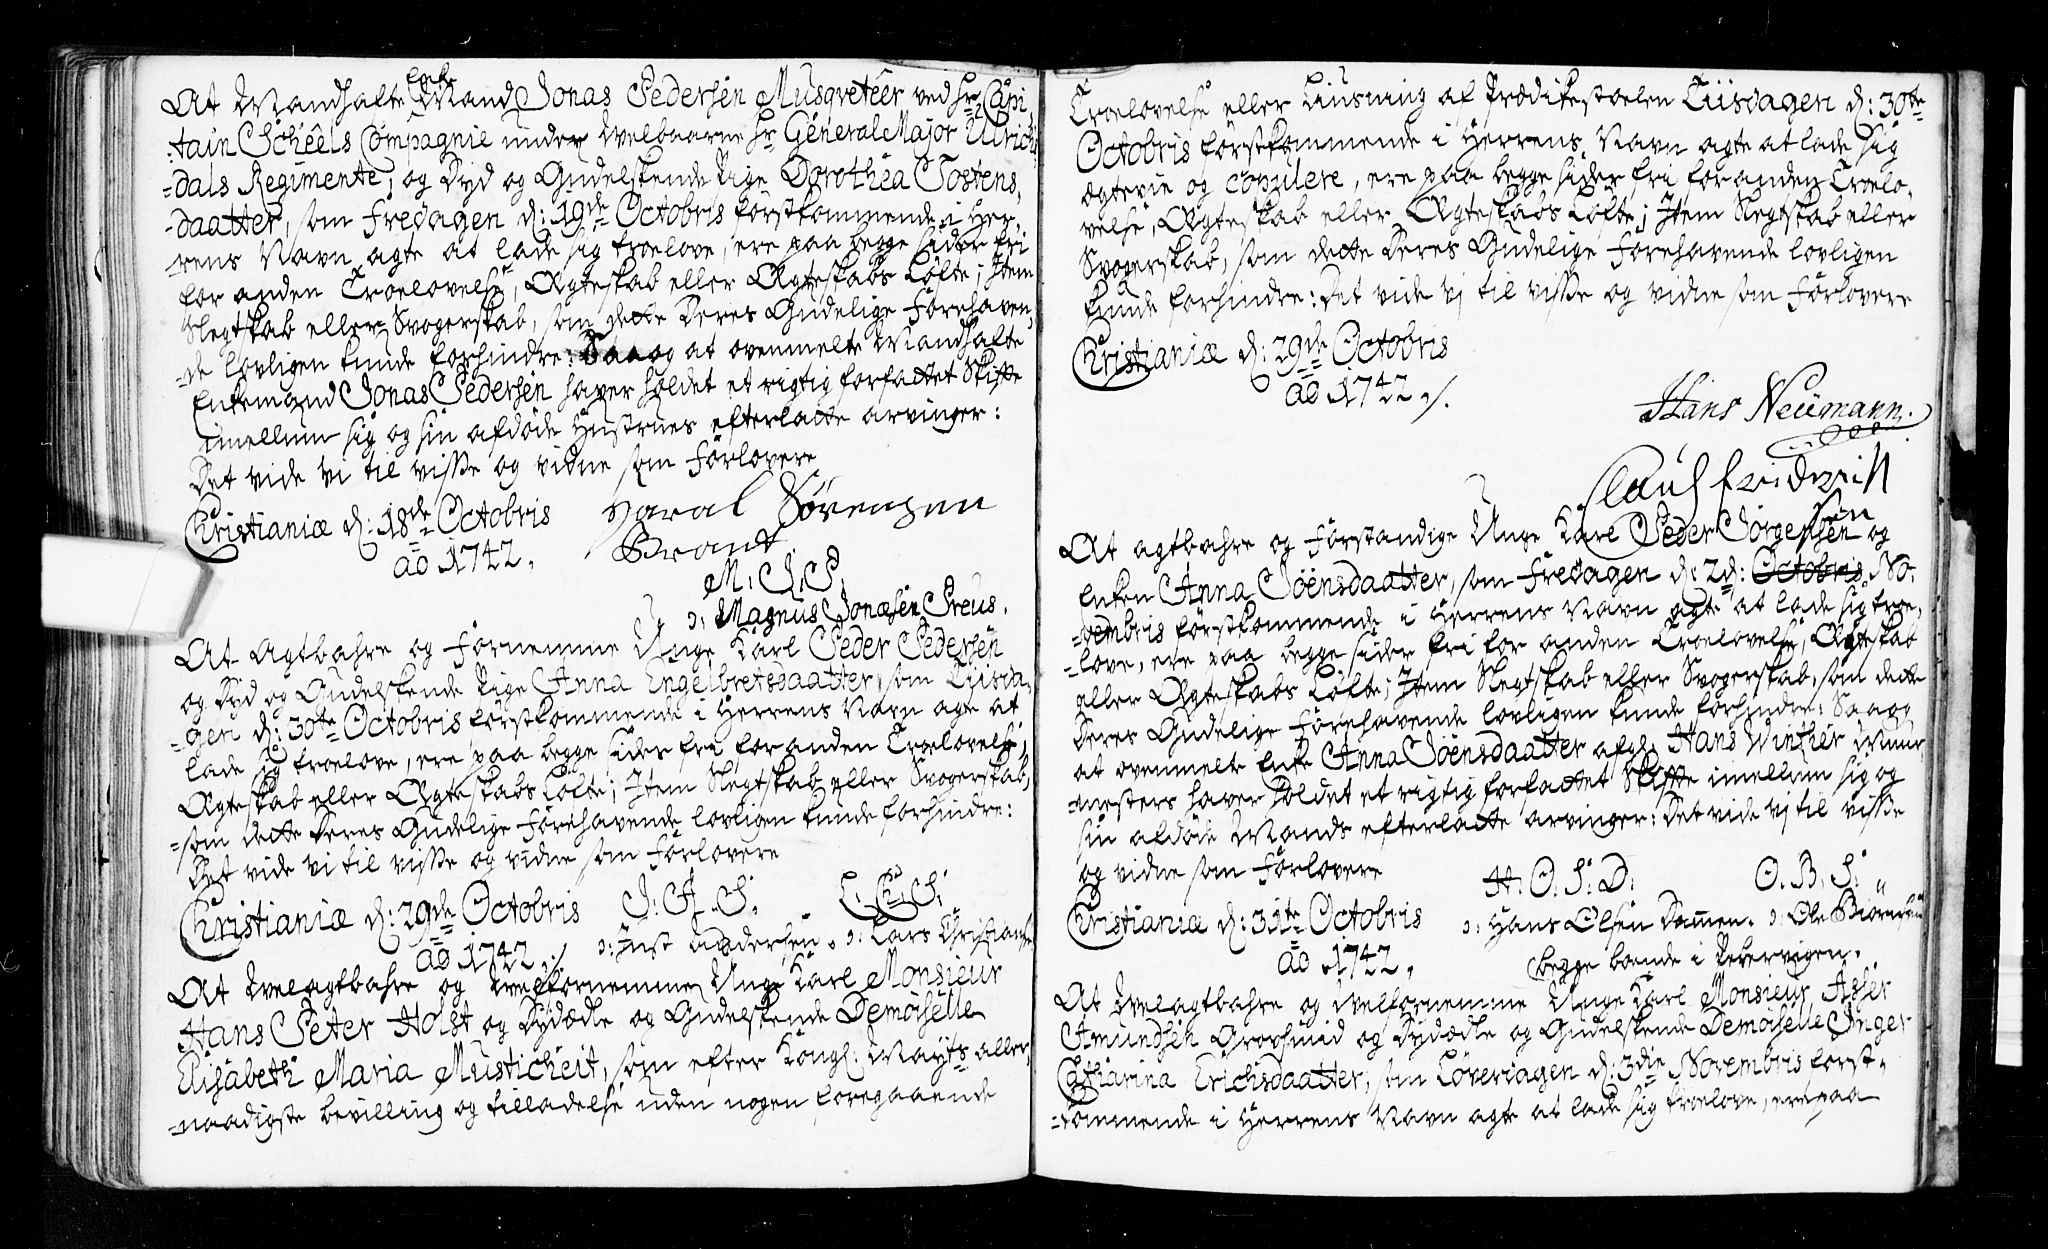 Enke
At Mandhafte Mand Jonas Pedersen Musqveteer ved Hr: Capi
-tain Scheels Compagnie under Welbaarne Hr General Major Ulrichs
-dals Regimente, og Dyd og Gudelskende Pige Dorothea Tostens,
-daatter, som Fredagen d: 19de Octobris förstkommende i Her,
-rens Navn agte at lade sig troelove, ere paa begge sider fri
for anden Troelovelse, Ægteskab eller Ægteskabs Löfte; Item
Slegtskab eller Svogerskab, som dette Deres Gudelige Forehaven,
-de lovligen kunde forhindre: Saa og at ovenmelte Mandhafte
Enkemand Jonas Pedersen haver holdet et rigtig forfattet Skifte
imellum sig og sin afdöde Hustrues efterladte arvinger:
Det vide vi til visse og vidne som Forlovere
Christianiæ d: 18de Octobris
ao 1742.
Haral Sørensen
Brandt
M: J: P:
ɔ: Magnus Jonæsen Preus.
At Agtbahre og Fornemme Unge Karl Peder Pedersen
og Dyd og Gudelskende Pige Anna Engelbretsdaatter, som Tiisda,
-gen d: 30te Octobris förstkommende i Herrens Navn agte at
lade sig troelove, ere paa begge sider fri for anden Troelovelse,
Ægteskab eller Ægteskabs Löfte; Item Slegtskab eller Svogerskab,
-som dette Deres Gudelige Forehavende lovligen kunde forhindre:
Det vide vi til visse og vidne som Forlovere
Christianiæ d: 29de Octobris
ao 1742 ./.
J: A: S:
ɔ: Just Andersen.
L: C: S:
ɔ: Lars Christians
At Welagtbahre og Welfornemme Unge Karl Monsieur
Hans Peter Holst og Dydædle og Gudelskende Demoiselle
Elisabeth Maria Musticheit, som efter Kongl: Mayts aller,
-naadigste bevilling og tilladelse uden nogen foregaaende
Troelovelse eller Liusning af Prædikestoelen Tiisdagen d: 30te
Octobris förstkommende i Herrens Navn agte at lade sig
ægtevie og copulere, ere paa begge sider fri for anden Troelo,
velse, Ægteskab eller Ægteskabs Löfte; Item Slegtskab eller
Svogerskab, som dette Deres Gudelige Forehavende lovligen
kunde forhindre: Det vide vj til visse og vidne som Forlovere
Christianiæ d: 29de Octobris
ao 1742 ./.
Hans Neumann.
Clauss Fridrich
At agtbahre og Forstandige Unge Karl Peder Jörgensen og
Enken Anna Joënsdaatter, som Fredagen d: 2d: Octobris No,
-vembris förstkommende i Herrens Navn agte at lade sig troe,
-love, ere paa begge sider fri for anden Troelovelse, Ægteskab
eller Ægteskabs Löfte; Item Slegtskab eller Svogerskab, som dette
Deres Gudelige Forehavende lovligen kunde forhindre: Saa og
at ovenmelte Enke Anna Joënsdaatter afgl. Hans Winther Muur,
-mesters haver holdet et rigtig forfattet Skifte imellum sig og
sin afdöde Mands efterladte arvinger: Det vide vj til visse
og vidne som Forlovere
Christianiæ d: 31te Octobris
ao 1742.
H: O: S: D:
ɔ: Hans Olsen Damen.
O. B. S:
ɔ: Ole Biörnsen
begge boende i Pebervigen.
At Welagtbahre og Welfornemme Unge Karl Monsieur Asser
Amundsen Grovsmid og Dydædle og Gudelskende Demoiselle Inger
Catharina Erichsdaatter, som Löverdagen d: 3die Novembris först,
-kommende i Herrens Navn agte at lade sig troelove, ere paa